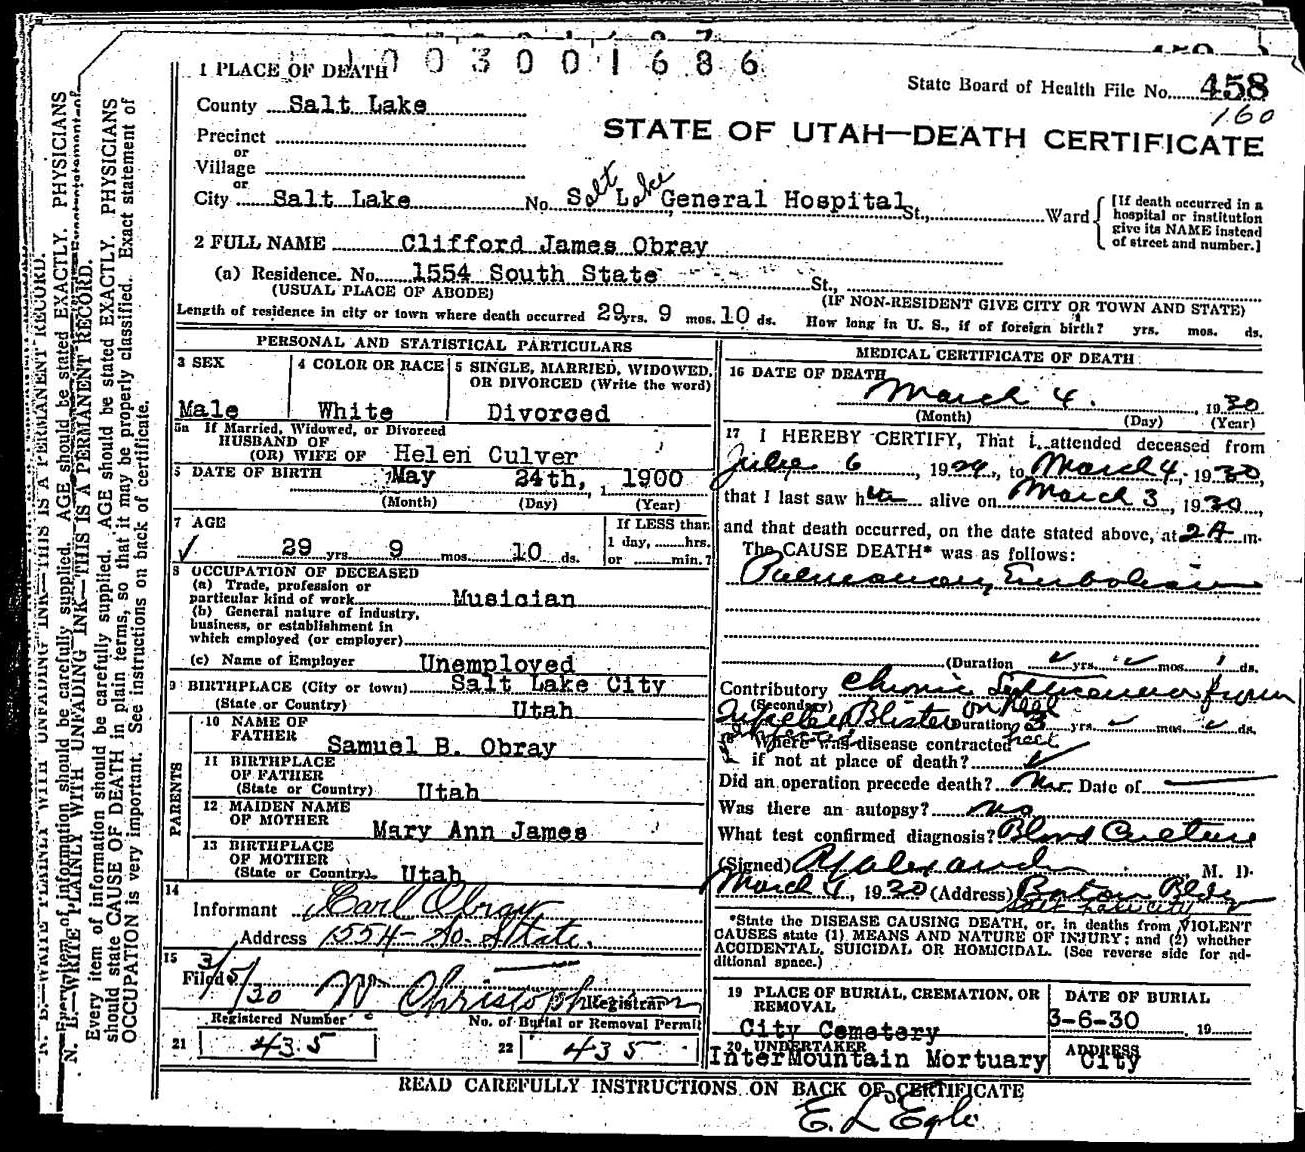 1003001686
1 PLACE OF DEATH
State Board of Health File No. 458
160
County Salt Lake
STATE OF UTAH—DEATH CERTIFICATE
Precinct
or
Village
or
City Salt Lake No. Salt Lake General Hospital St., Ward
[If death occurred in a hospital or institution give its NAME instead of street and number.]
2 FULL NAME Clifford James Obray
(a) Residence. No. 1554 South State St.,
(USUAL PLACE OF ABODE) (IF NON-RESIDENT GIVE CITY OR TOWN AND STATE)
Length of residence in city or town where death occurred 29 yrs. 9 mos. 10 ds. How long in U. S., if of foreign birth? yrs. mos. ds.
PERSONAL AND STATISTICAL PARTICULARS
3 SEX 4 COLOR OR RACE 5 SINGLE, MARRIED, WIDOWED,
OR DIVORCED (Write the word)
Male White Divorced
5a If Married, Widowed, or Divorced
HUSBAND OF
(OR) WIFE OF Helen Culver
DATE OF BIRTH May 24th, 1900
(Month) (Day) (Year)
7 AGE If LESS than
1 day, hrs.
29 yrs. 9 mos. 10 ds. or min.?
8 OCCUPATION OF DECEASED
(a) Trade, profession or
particular kind of work Musician
(b) General nature of industry,
business, or establishment in
which employed (or employer)
(c) Name of Employer Unemployed
9 BIRTHPLACE (City or town) Salt Lake City
(State or Country) Utah
PARENTS
10 NAME OF
FATHER Samuel B. Obray
11 BIRTHPLACE
OF FATHER
(State or Country) Utah
12 MAIDEN NAME
OF MOTHER Mary Ann James
13 BIRTHPLACE
OF MOTHER
(State or Country) Utah
14
Informant Earl Obray
Address 1554 So. State.
15
Filed 3/5/30 Registrar
Registered Number No. of Burial or Removal Permit
21 435 22 435
MEDICAL CERTIFICATE OF DEATH
16 DATE OF DEATH
March 4. , 1930
(Month) (Day) (Year)
17 I HEREBY CERTIFY, That I attended deceased from
6 , 1929, to March 4, 1930,
that I last saw h alive on March 3, 1930,
and that death occurred, on the date stated above, at 2A m.
The CAUSE DEATH* was as follows:
Pulmonary Embolism
(Duration yrs. mos. 1 ds.
Contributory Chronic Septicemia from
(Secondary)
Infected Blister on heel
Duration 3 yrs. mos. ds.
Where was disease contracted
if not at place of death?
Did an operation precede death? No. Date of
Was there an autopsy? no
What test confirmed diagnosis? Blood Culture
(Signed) Alexander M. D.
March 4, 1930 (Address) Bldg
Salt Lake City
*State the DISEASE CAUSING DEATH, or, in deaths from VIOLENT
CAUSES state (1) MEANS AND NATURE OF INJURY; and (2) whether
ACCIDENTAL, SUICIDAL OR HOMICIDAL. (See reverse side for ad-
ditional space.)
19 PLACE OF BURIAL, CREMATION, OR
REMOVAL DATE OF BURIAL
City Cemetery 3-6-30 , 19
20 UNDERTAKER ADDRESS
InterMountain Mortuary City
READ CAREFULLY INSTRUCTIONS ON BACK OF CERTIFICATE
N. B.—WRITE PLAINLY WITH UNFADING INK—THIS IS A PERMANENT RECORD.
Every item of information should be carefully supplied. AGE should be stated EXACTLY. PHYSICIANS
should state CAUSE OF DEATH in plain terms, so that it may be properly classified. Exact statement of
OCCUPATION is very important. See instructions on back of certificate.